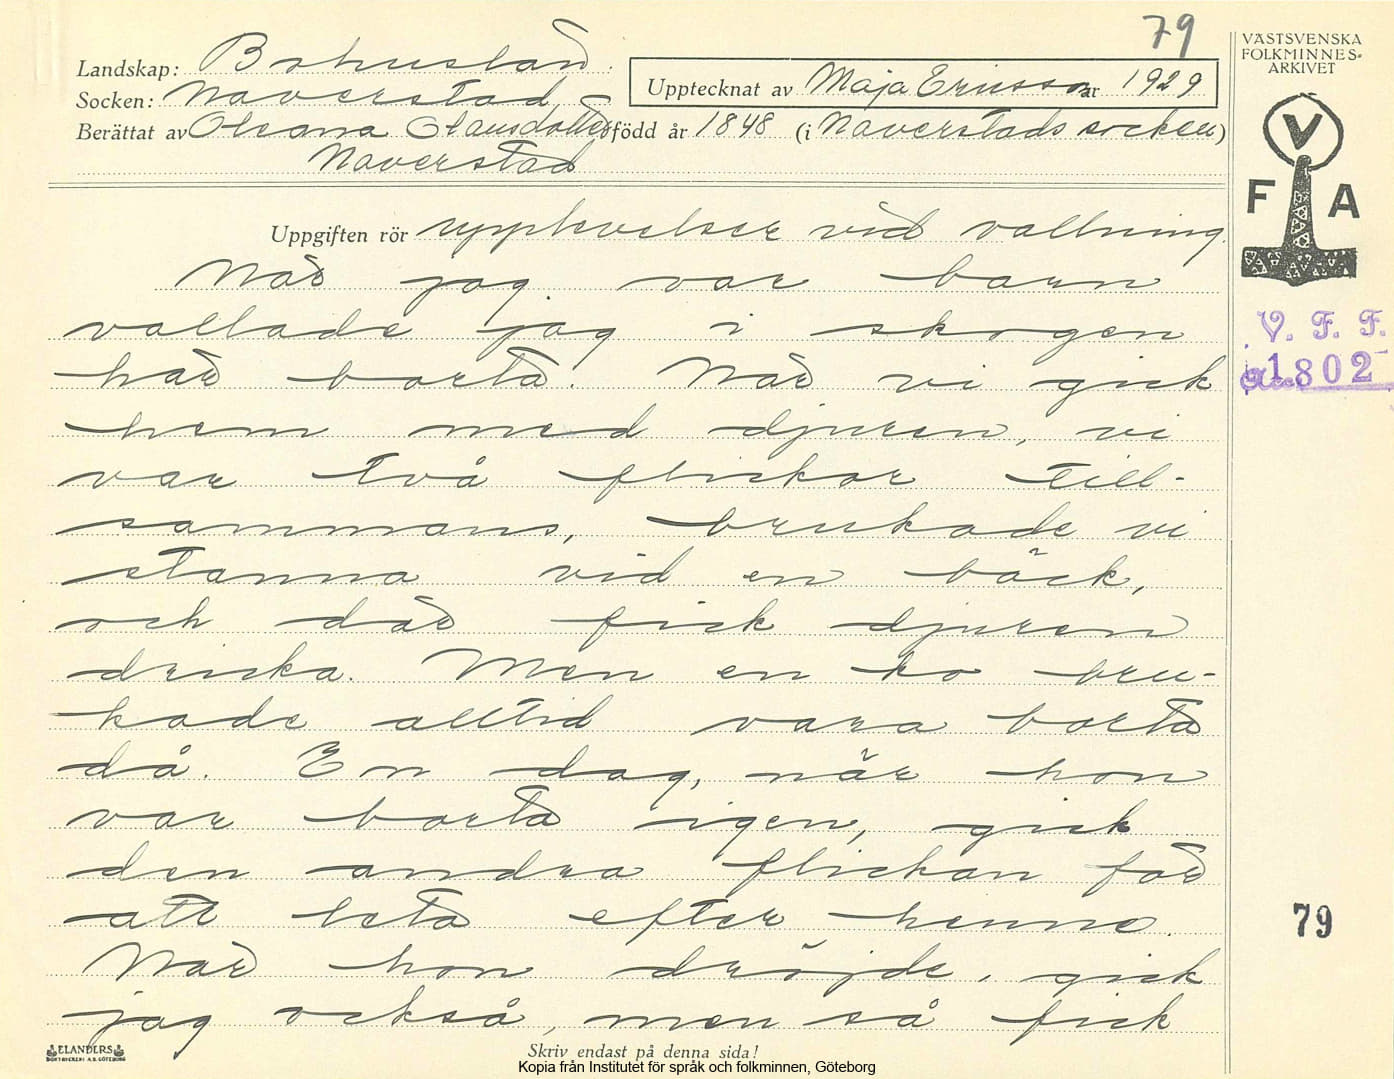 79
VÄSTSVENSKA
FOLKMINNES-
ARKIVET
Landskap: Bohuslän
Socken: Naverstad
Upptecknat av Maja Ericsson år 1929
Berättat av Oleana Olausdotter född år 1848 (i Naverstads socken)
Naverstad
V
F A
Uppgiften rör upplevelser vid vallning.
När jag var barn
vallade jag i skogen
här borta. När vi gick
hem med djuren, vi
var två flickor till-
sammans, brukade vi
stanna vid en bäck,
och där fick djuren
dricka. Men en ko bru-
kade alltid vara borta
då. En dag, när hon
var borta igen, gick
den andra flickan för
att leta efter henne.
När hon dröjde, gick
jag också, men så fick
V. F. F.
1802
79
ELANDERS
BOKTRYCKERI A.B. GÖTEBORG
Skriv endast på denna sida!
Kopia från Institutet för språk och folkminnen, Göteborg